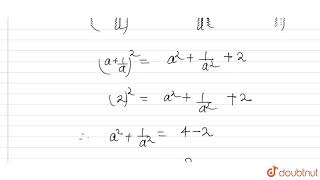 (a+1/a)² = a² + 1/a² + 2
(2)² = a² + 1/a² + 2
∴ a² + 1/a² = 4-2
doubtnut